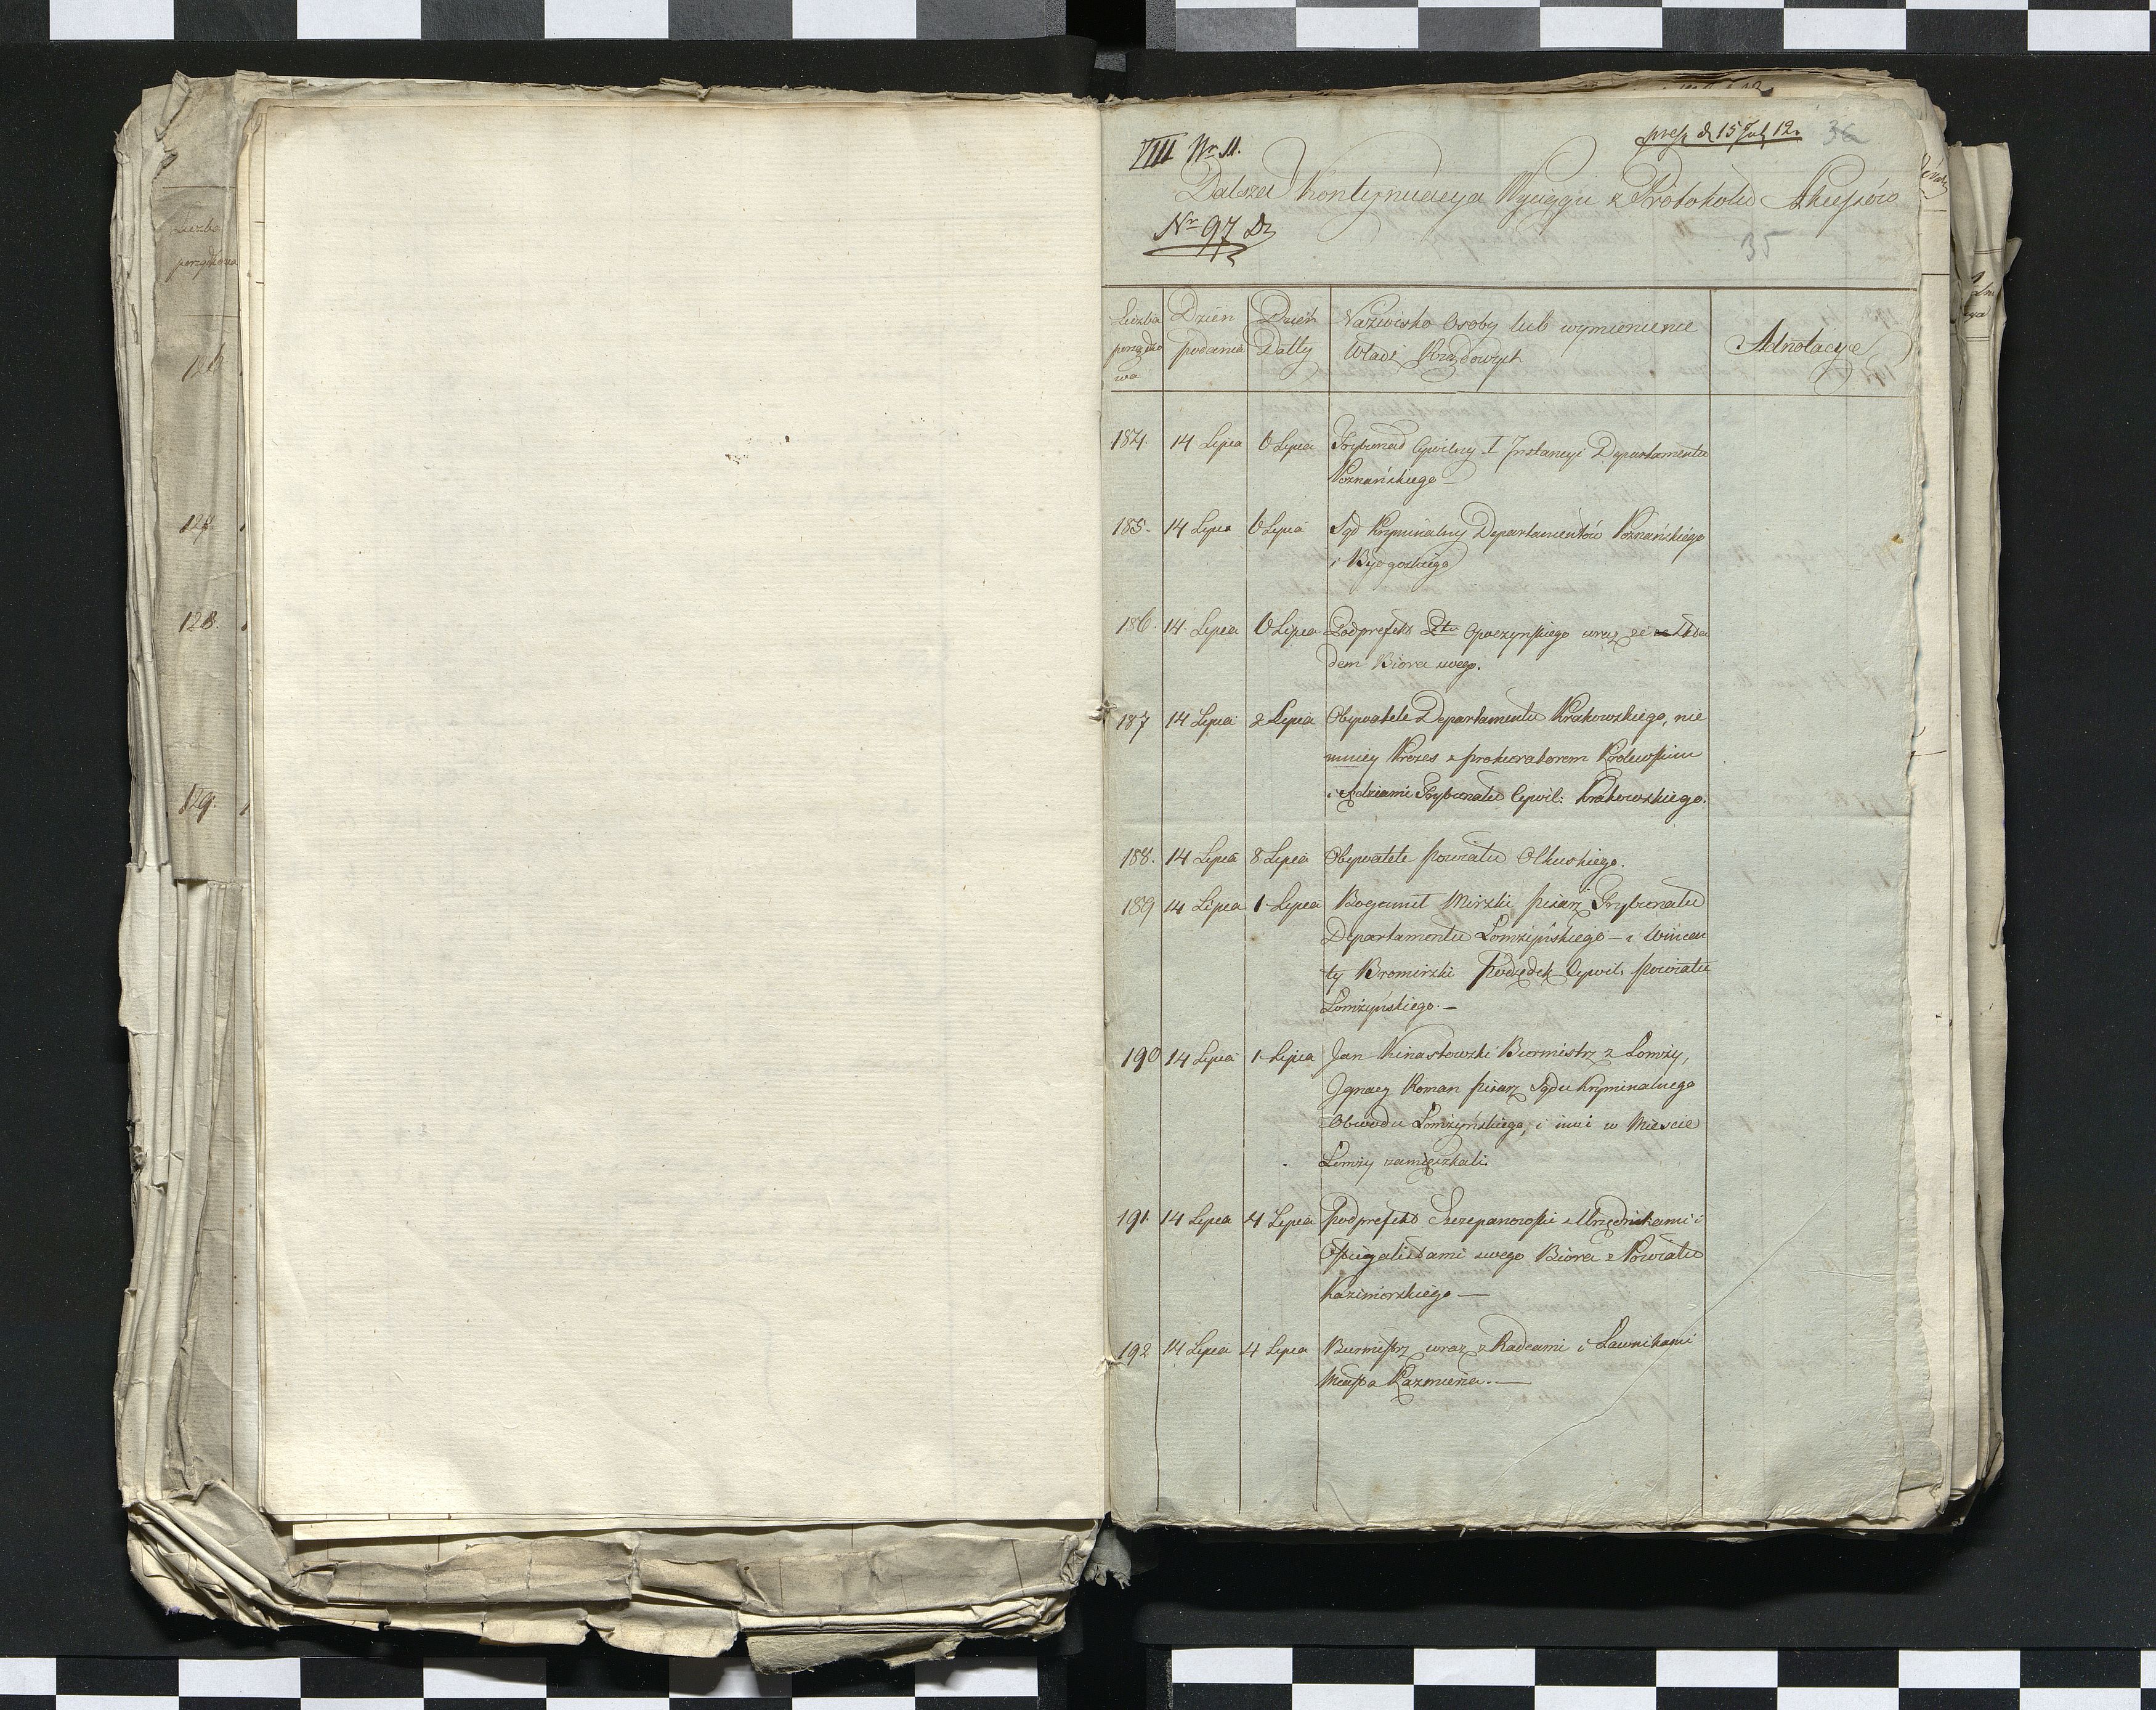 Liczba
porządkowa
126
127.
128.
129.
VIII Nr 11.
pres. d 15 July 12.
36
Dalsza Kontynuacya Wyciągu z Protokołu Akcessów
Nr 97 Dz
35
Liczba
porządko
wa
Dzień
podania
Dzień
Datty
Nazwisko Osoby lub wymienienie
Władz Rządowych
Adnotacye
184. 14 Lipca 6 Lipca Trybunał Cywilny I Instancyi Departamentu
Poznańskiego —
185. 14 Lipca 6 Lipca Sąd Kryminalny Departamentów Poznańskiego
i Bydgoskiego
186. 14 Lipca 6 Lipca Podprefekt Ptu Opoczynskiego wraz ze Skła
dem Biora swego.
187 14 Lipca 2 Lipca Obywatele Departamentu Krakowskiego, nie
mniey Prezes z prokuratorem Królewskim
i Sędziami Trybunału Cywil: Krakowskiego.
188. 14 Lipca 8 Lipca Obywatele powiatu Olkuskiego.
189 14 Lipca 1 Lipca Bogumił Mirski pisarz Trybunału
Departamentu Łomżyńskiego — i Wincen
ty Bromirski Podsędek Cywil. powiatu
Łomżyńskiego. —
190 14 Lipca 1 Lipca Jan Kinastowski Burmistrz z Łomży,
Ignacy Roman pisarz Sądu Kryminalnego
Obwodu Łomżyńskiego, i inni w Mieście
Łomży zamieszkali.
191. 14 Lipca 4 Lipca Podprefekt Szczepanowski z Urzędnikami i
Officyalistami swego Biora z Powiatu
Kazimirskiego —
192 14 Lipca 4 Lipca Burmistrz wraz z Radcami i Ławnikami
Miasta Kazmierza. —